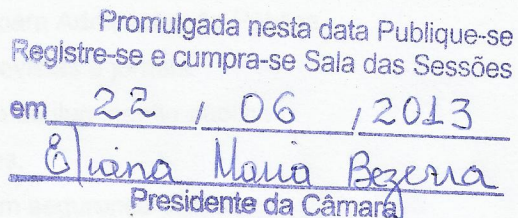 Promulgada nesta data Publique-se
Registre-se e cumpra-se Sala das Sessões
em 22 / 06 / 2013
Eliana Maria Bezerra
Presidente da Câmara